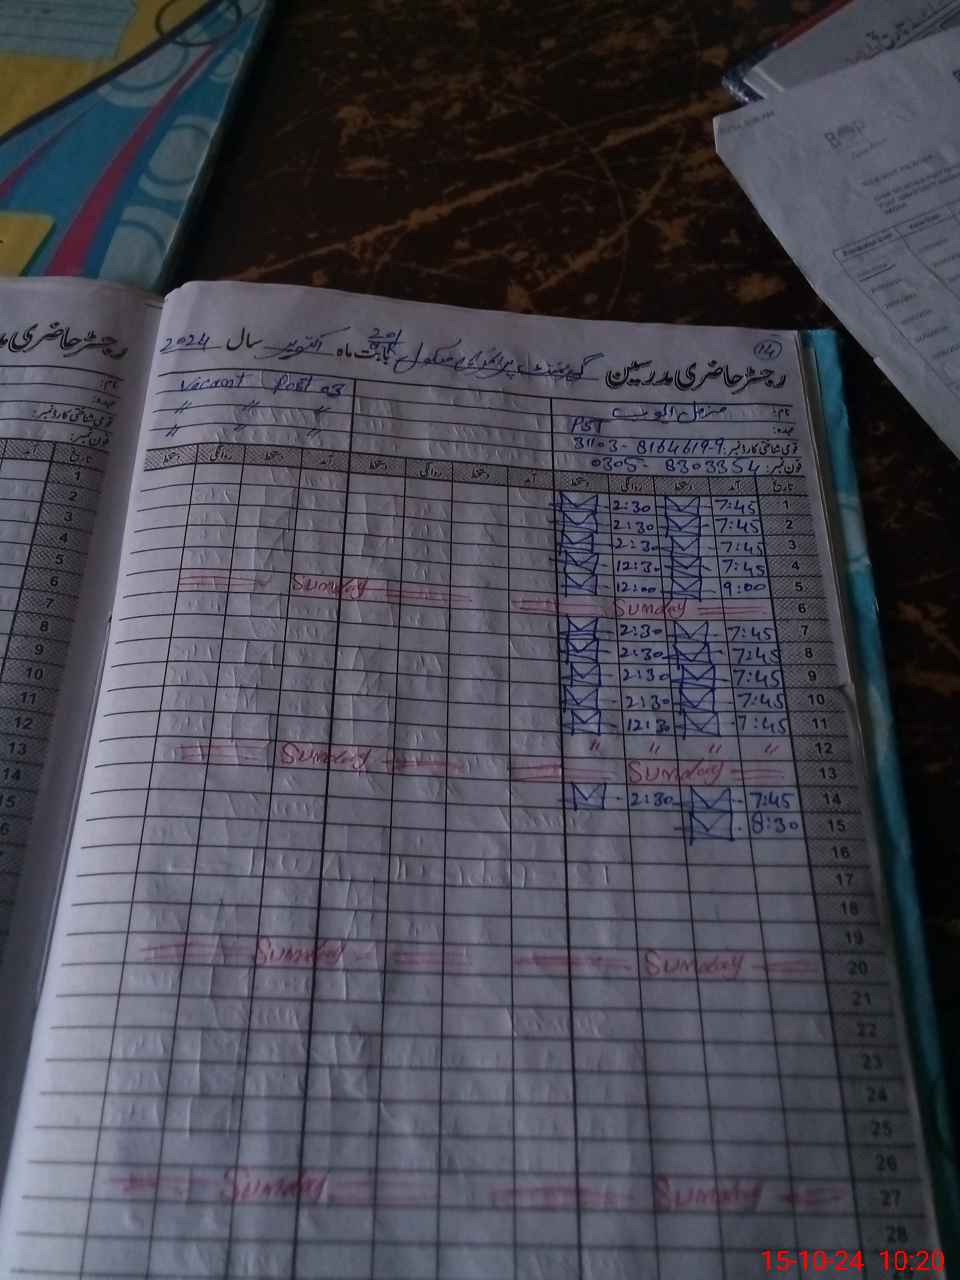 رجسٹر حاضری مدرسین گورنمنٹ پرائمری سکول بابت ماہ اکتوبر سال 2024
14
201
نام:
عہدہ: PST
قومی شناختی کارڈ نمبر: 31103-8164619-9
فون نمبر: 0305-8303354
Vacant Post as
" " "
" " "
تاریخ آمد دستخط روانگی دستخط آمد دستخط روانگی دستخط آمد دستخط روانگی دستخط
1 7:45 2:30
2 7:45 2:30
3 7:45 2:30
4 7:45 12:30
5 9:00 12:00
6 Sunday Sunday
7 7:45 2:30
8 7:45 2:30
9 7:45 2:30
10 7:45 2:30
11 7:45 12:30
12 " " " "
13 Sunday Sunday
14 7:45 2:30
15 8:30
16
17
18
19
20 Sunday Sunday
21
22
23
24
25
26
27 Sunday Sunday
28
رجسٹر حاضری
نام:
عہدہ:
قومی شناختی کارڈ نمبر:
فون نمبر:
تاریخ آمد
1
2
3
4
5
6
7
8
9
10
11
12
13
14
15
6
15-10-24 10:20